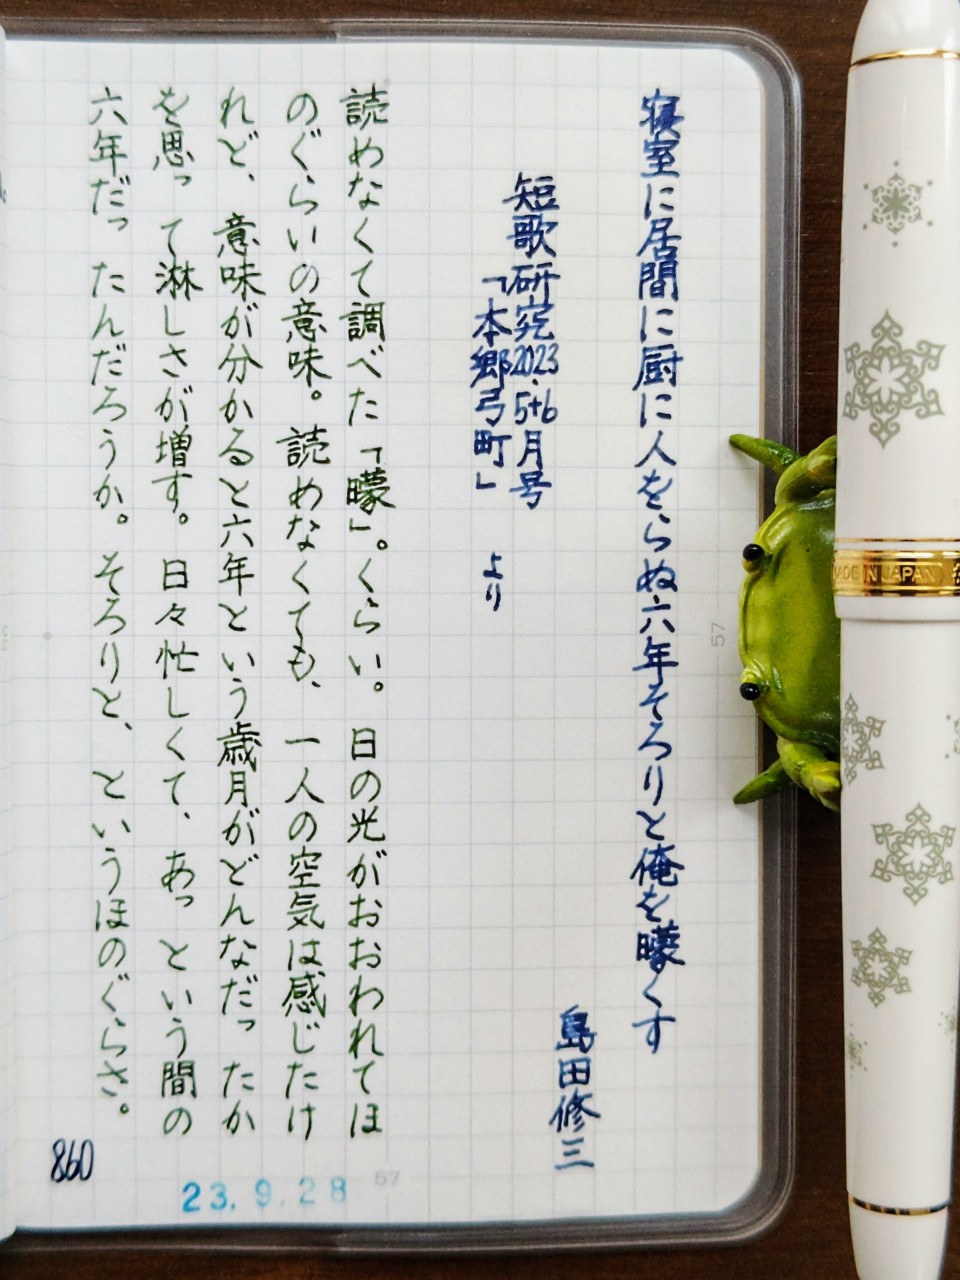 寝室に居間に厨に人をらぬ六年そろりと俺を曚くす
島田修三
短歌研究2023.5+6月号
「本郷弓町」 より
読めなくて調べた「曚」。くらい。日の光がおおわれてほ
のぐらいの意味。読めなくても、一人の空気は感じたけ
れど、意味が分かると六年という歳月がどんなだったか
を思って淋しさが増す。日々忙しくて、あっという間の
六年だったんだろうか。そろりと、というほのぐらさ。
860
23.9.28
57
57
MADE IN JAPAN